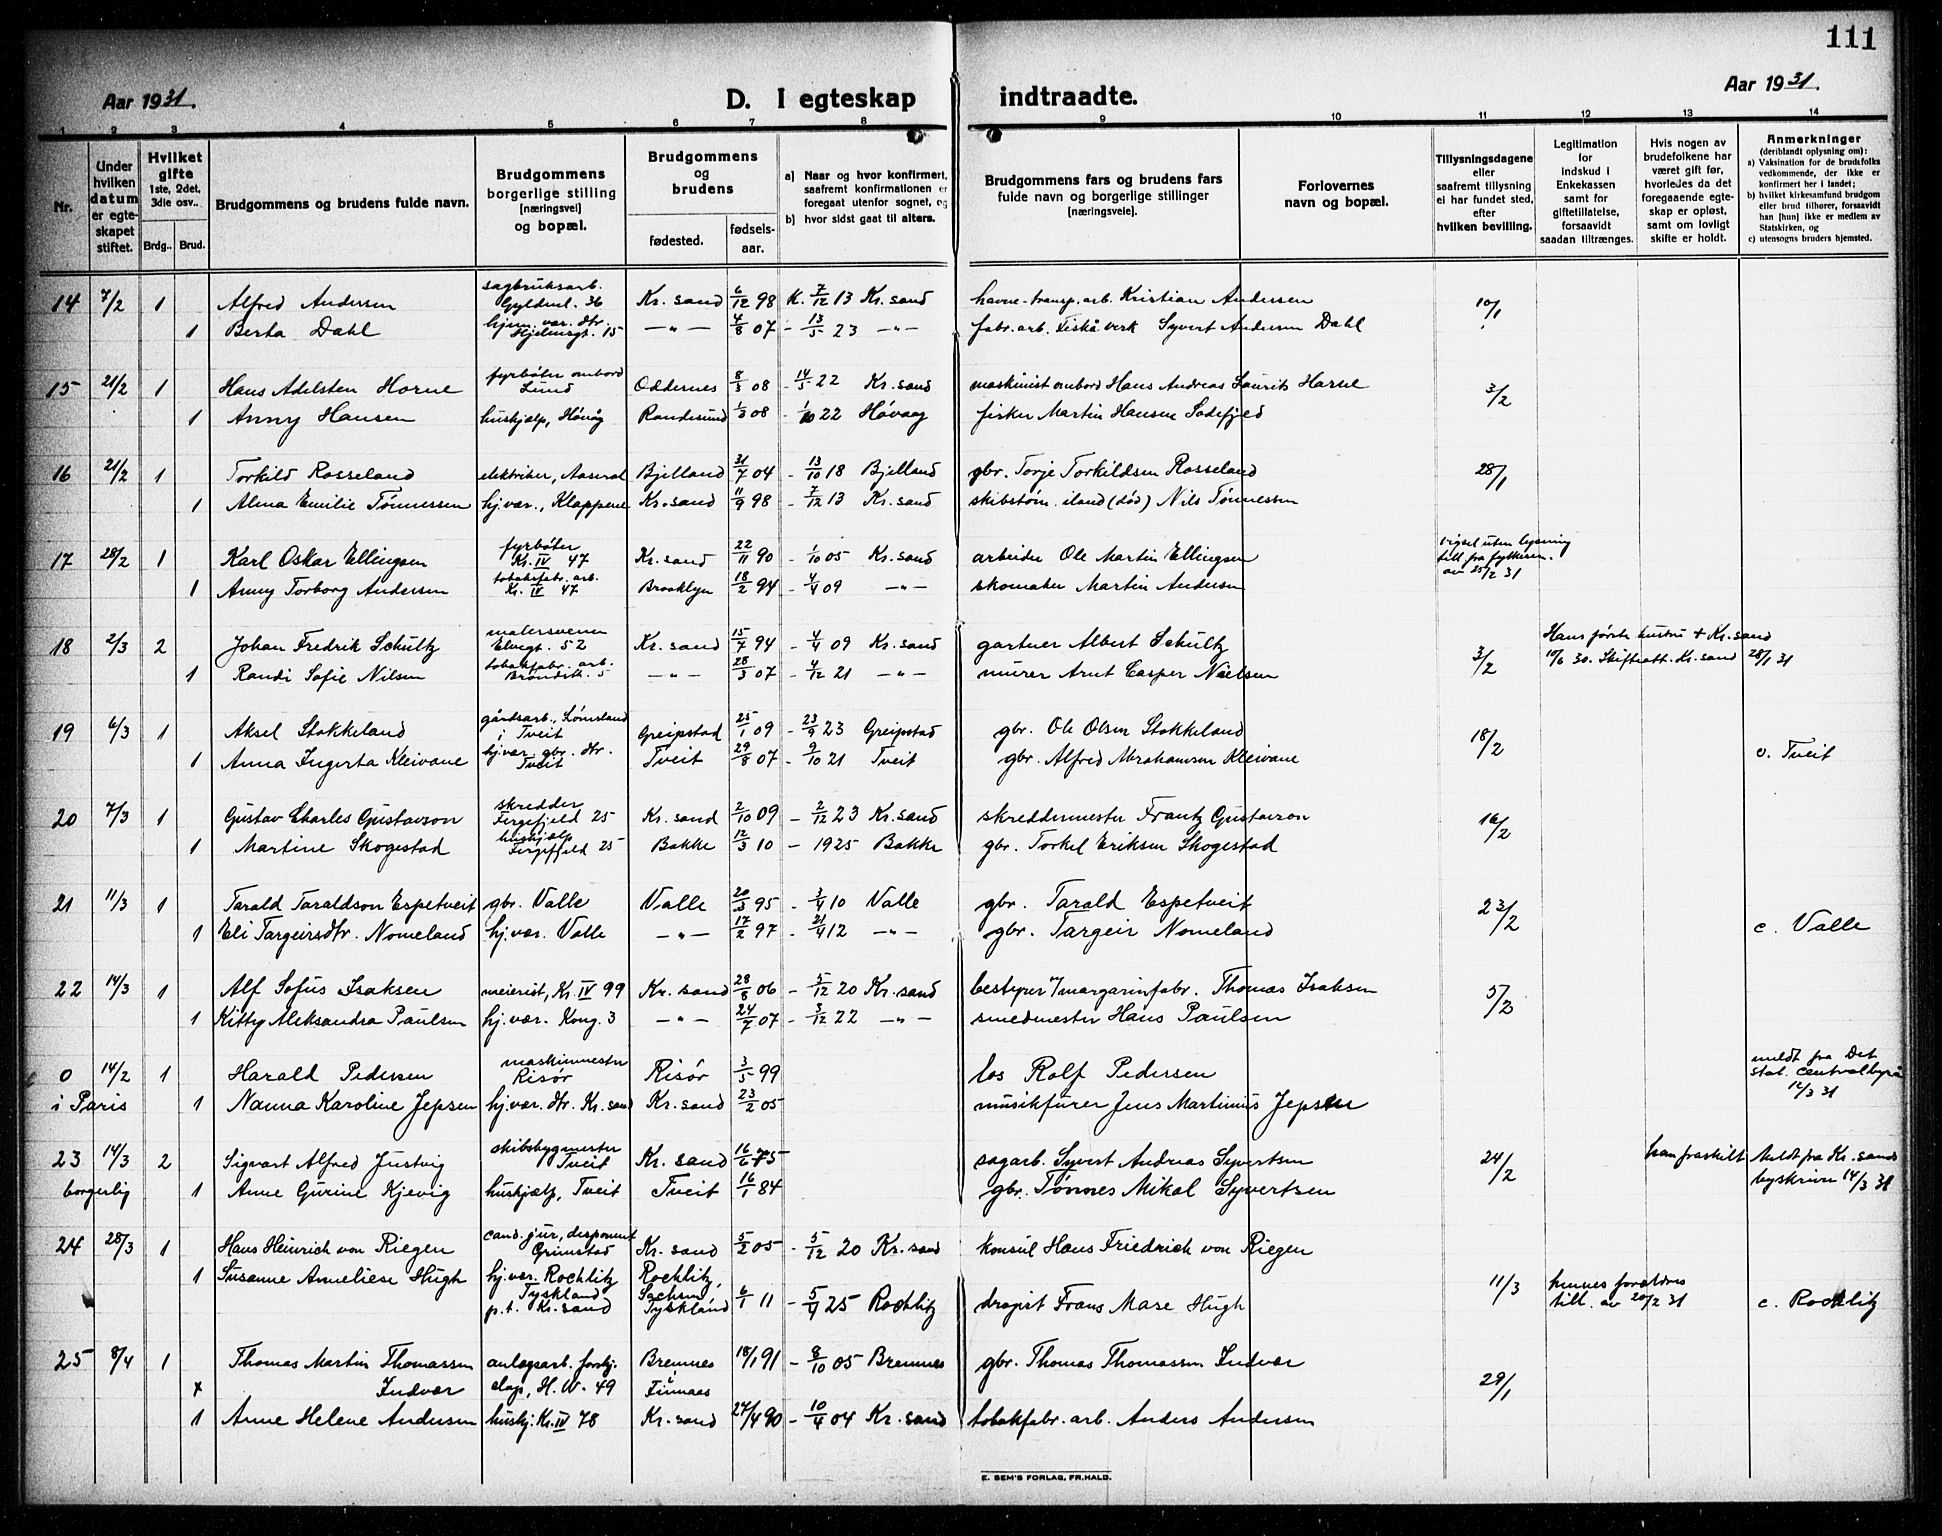 111
Aar 1931.
D. I egteskap indtraadte.
Aar 1931.
1 2 3 4 5 6 7 8 9 10 11 12 13 14
Nr.
Under hvilken datum er egteskapet stiftet.
Hvilket gifte 1ste, 2det, 3die osv..
Brdg.. Brud.
Brudgommens og brudens fulde navn.
Brudgommens borgerlige stilling [næringsvei] og bopæl.
Brudgommens og brudens
fødested. fødselsaar.
a) Naar og hvor konfirmert, saafremt konfirmationen er foregaat utenfor sognet, og
b) hvor sidst gaat til alters.
Brudgommens fars og brudens fars fulde navn og borgerlige stillinger [næringsveie].
Forlovernes navn og bopæl.
Tillysningsdagene eller saafremt tillysning ei har fundet sted, efter hvilken bevilling.
Legitimation for Indskud i Enkekassen samt for giftetillatelse, forsaavidt saadan tiltrænges.
Hvis nogen av brudefolkene har været gift før, hvorledes da det foregaaende egteskap er opløst, samt om lovligt skifte er holdt.
Anmerkninger (deriblandt oplysning om):
a) Vaksination for de brudefolks vedkommende, der ikke er konfirmert her i landet;
b) hvilket kirkesamfund brudgom eller brud tilhører, forsaavidt han [hun] ikke er medlem av Statskirken, og
c) utensogns bruders hjemsted.
14 7/2 1 Alfred Andersen sagbruksarb. Gyldenl. 36 Kr. sand 6/12 98 K. 7/12 13 Kr. sand havne-transp. arb. Kristian Andersen 10/1
1 Berta Dahl hjem. vær. dtr. Hjelmsgt. 15 —"— 4/8 07 - 13/5 23 —"— fabr. arb. Fiskå verk Syvert Andersen Dahl
15 21/2 1 Hans Adelsten Horne fyrbøter ombord Lund Oddernes 8/3 08 - 14/5 22 Kr. sand maskinist ombord Hans Andreas Laurits Horne 3/2
1 Anny Hansen huskjælp, Høvåg Randesund 1/3 08 - 1/10 22 Høvaag fisker Martin Hansen Sodefjed
16 21/2 1 Torkild Rosseland elektriker, Aaseral Bjelland 31/7 04 - 13/10 18 Bjelland gbr. Torje Torkildsen Rosseland 28/1
1 Alma Emilie Tønnessen hj. vær., Klappene Kr. sand 11/9 98 - 7/12 13 Kr. sand skibstøm. iland (død) Nils Tønnessen
17 28/2 1 Karl Oskar Ellingsen fyrbøter Kr. IV 47 Kr. sand 22/11 90 - 1/10 05 Kr. sand arbeider Ole Martin Ellingsen vigsel uten lysning till. fra fylkesm. av 25/2 31
1 Anny Torborg Andersen tobaksfabr. arb. Kr. IV 47 Brooklyn 18/2 94 - 4/4 09 —"— skomaker Martin Andersen
18 2/3 2 Johan Fredrik Schultz malersvenn Elvegt. 52 Kr. sand 15/7 94 - 4/4 09 Kr. sand gartner Albert Schultz 3/2 Hans første hustru + Kr. sand 10/6 30. Skifteatt. Kr. sand 28/1 31
1 Randi Sofie Nilsen tobakfabr. arb. Brøndstr. 5 —"— 28/3 07 - 4/12 21 —"— murer Arnt Casper Nielsen
19 6/3 1 Aksel Stokkeland gårdsarb., Lømsland i Tveit Greipstad 25/1 09 - 23/9 23 Greipstad gbr. Ole Olsen Stokkeland 18/2
1 Anna Ingerta Kleivane hj. vær. gbr. dtr. Tveit Tveit 29/8 07 - 9/10 21 Tveit gbr. Alfred Abrahamsen Kleivane c. Tveit
20 7/3 1 Gustav Charles Gustavson skredder Fergefjeld 25 Kr. sand 2/10 09 - 2/12 23 Kr. sand skreddermester Frantz Gustavson 16/2
1 Martine Skogestad huskjælp Fergefjeld 25 Bakke 12/3 10 - 1925 Bakke gbr. Torkel Eriksen Skogestad
21 11/3 1 Tarald Taraldson Espetveit gbr. Valle Valle 20/3 95 - 3/4 10 Valle gbr. Tarald Espetveit 23/2
1 Eli Targeirsdtr. Nomeland hj. vær. Valle —"— 17/2 97 - 21/4 12 —"— gbr. Targeir Nomeland c. Valle
22 14/3 1 Alf Sofus Isaksen meierist, Kr. IV 99 Kr. sand 28/8 06 - 5/12 20 Kr. sand bestyrer v/margarinfabr. Thomas Isaksen 5/2
1 Kitty Aleksandra Paulsen hj. vær. Kong. 3 —"— 24/7 07 - 3/12 22 —"— smedmester Hans Paulsen
0 14/2 1 Harald Pedersen maskinmester Risør Risør 3/5 99 los Rolf Pedersen meldt fra Det stat. Centralbyrå 12/3 31
i Paris 1 Nanna Karoline Jepsen hj. vær. dtr. Kr. sand Kr. sand 23/2 05 musikfurer Jens Martinus Jepsen
23 14/3 2 Sigvart Alfred Justvig skibsbygmester Tveit Kr. sand 16/6 75 sagarb. Syvert Andreas Syvertsen 24/2 han fraskilt Meldt fra Kr. sands byskriver 14/3 31
borgerlig 1 Anne Gurine Kjevig huskjælp, Tveit Tveit 16/1 84 gbr. Tønnes Mikal Syvertsen
24 28/3 1 Hans Heinrich von Riegen cand. jur., disponent Grimstad Kr. sand 5/2 05 - 5/12 20 Kr. sand konsul Hans Friedrich von Riegen
1 Susanne Anneliese Hugh hj. vær. Rochlitz Tyskland p. t. Kr. sand Rochlitz, Sachsen Tyskland 6/1 11 - 5/4 25 Rochlitz drogist Frans Mase Hugh 11/3 hennes foreldres till. av 20/2 31 c. Rochlitz
25 8/4 1 Thomas Martin Thomassen Indvær anlægsarb. forskj. slag, H. W. 49 Bremnes i Finnaas 18/1 91 - 8/10 05 Bremnes gbr. Thomas Thomassen Indvær 29/1
x
1 Anne Helene Andersen huskj. Kr. IV 78 Kr. sand 27/4 90 - 10/4 04 Kr. sand tobakfabr. arb. Anders Andersen
E. SEM'S FORLAG, FR.HALD.